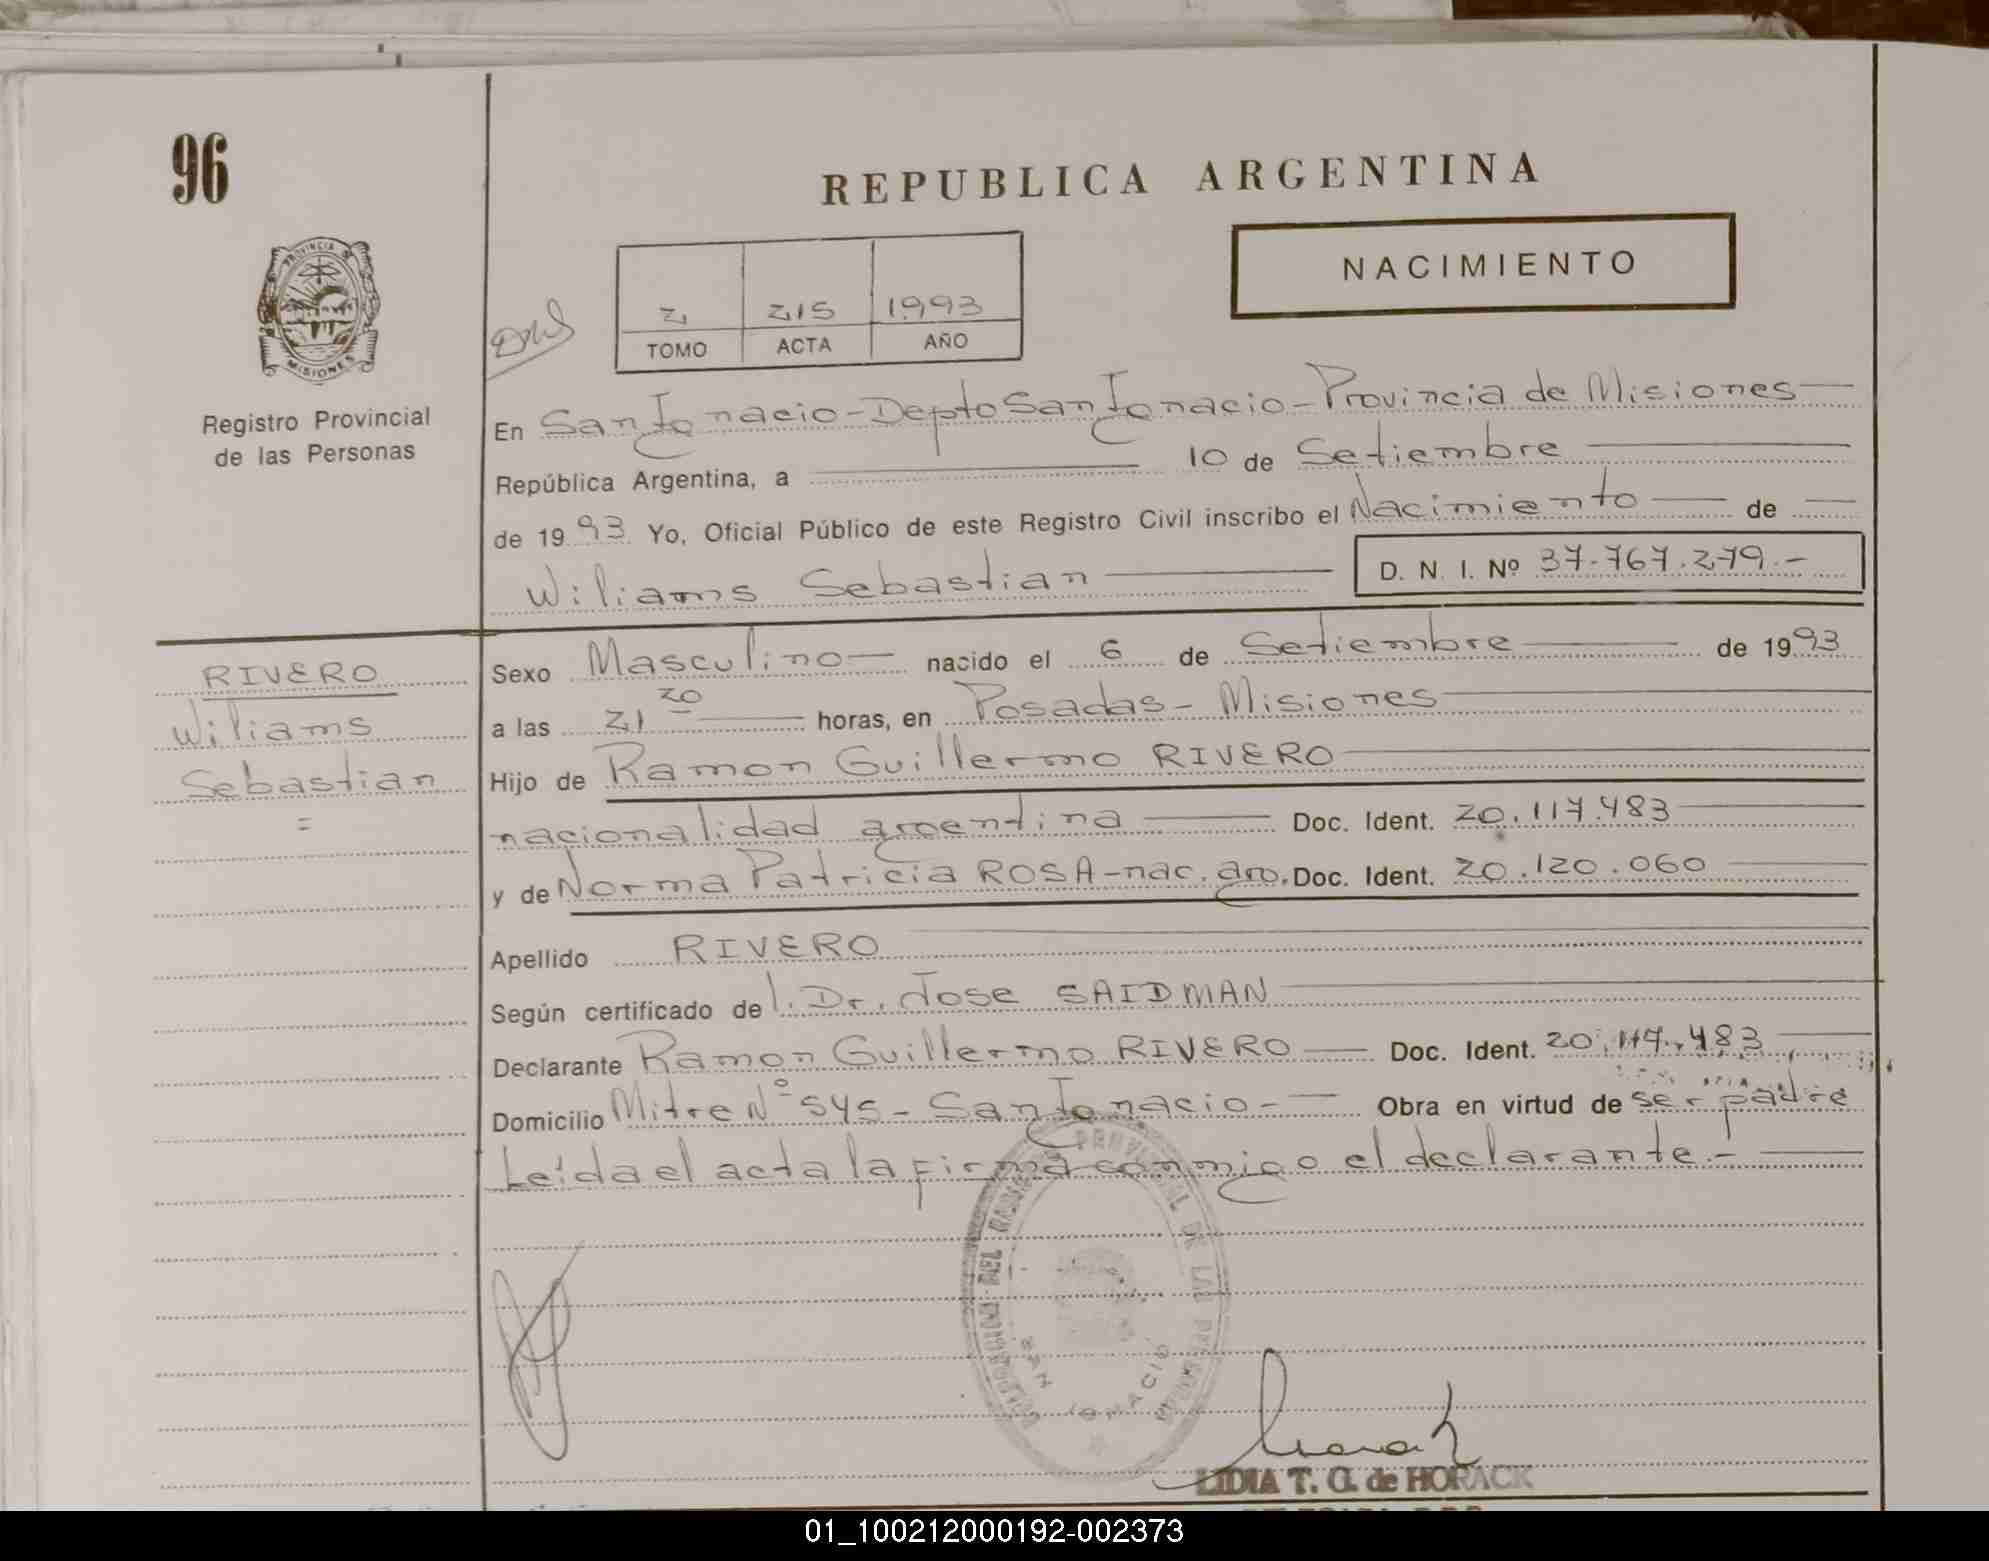 96
REPUBLICA ARGENTINA
NACIMIENTO
PROVINCIA
MISIONES
Registro Provincial
de las Personas
2 215 1993
TOMO ACTA AÑO
En San Ignacio - Depto San Ignacio - Provincia de Misiones
República Argentina, a 10 de Setiembre
de 1993 Yo, Oficial Público de este Registro Civil inscribo el Nacimiento de
Wiliams Sebastian D. N. I. Nº 37.767.279.-
RIVERO
Wiliams
Sebastian
=
Sexo Masculino nacido el 6 de Setiembre de 1993
a las 21 20 horas, en Posadas - Misiones
Hijo de Ramon Guillermo RIVERO
nacionalidad argentina Doc. Ident. 20.117.483
y de Norma Patricia ROSA - nac. arg. Doc. Ident. 20.120.060
Apellido RIVERO
Según certificado del Dr. Jose SAIDMAN
Declarante Ramon Guillermo RIVERO Doc. Ident. 20.117.483
Domicilio Mitre Nº 545 - San Ignacio - Obra en virtud de ser padre
Leida el acta la firma conmigo el declarante.-
SAN IGNACIO
LIDIA T. G. de HORACK
01_100212000192-002373